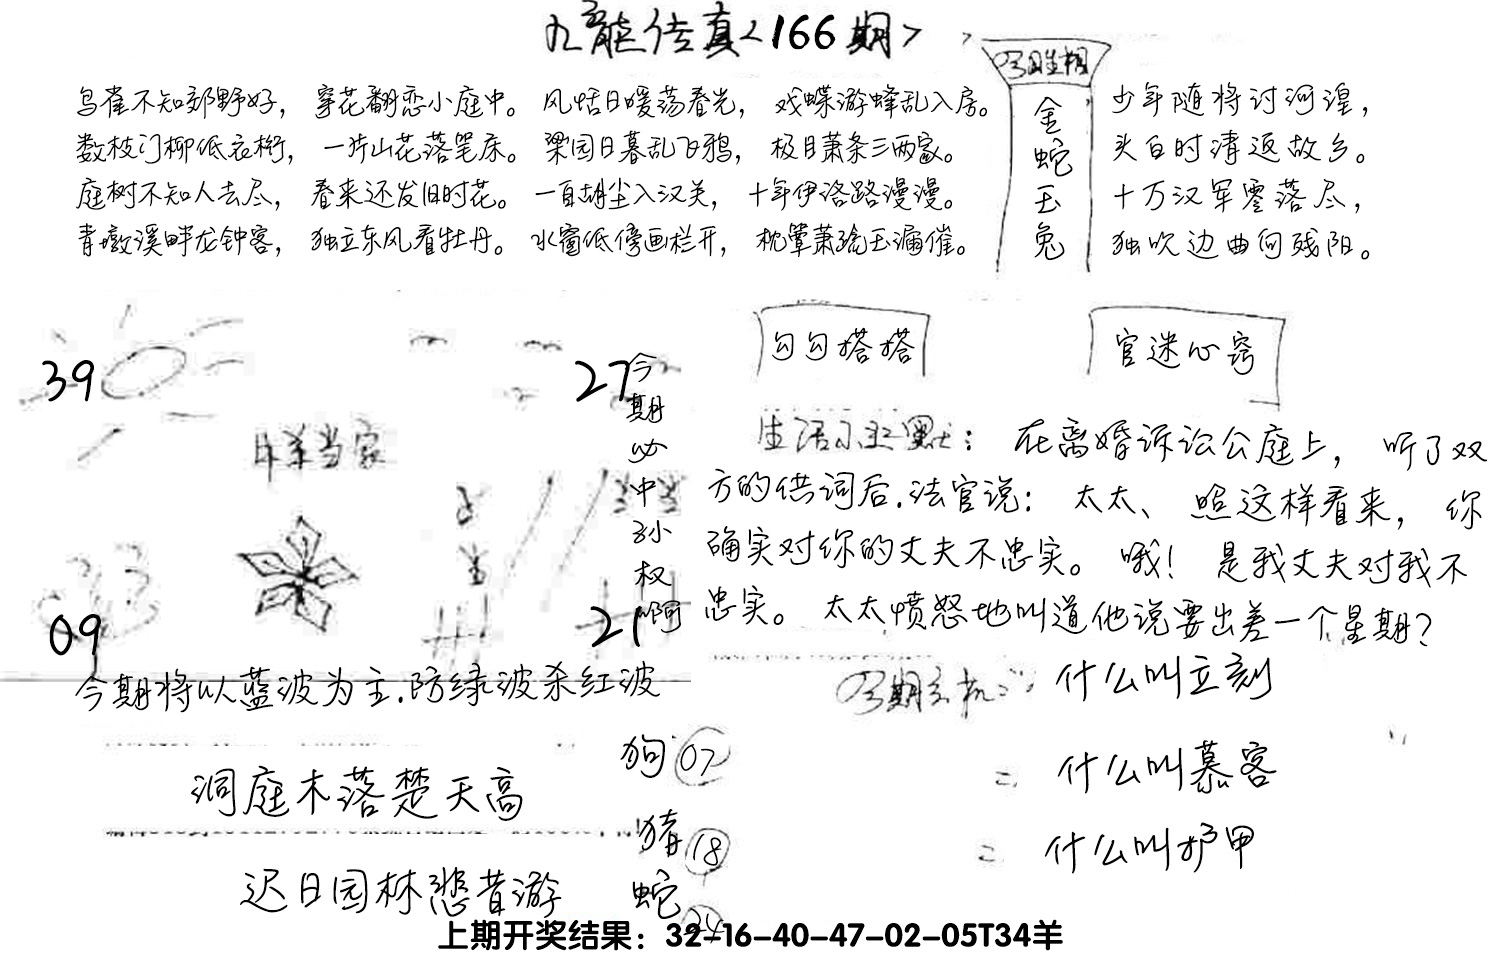 九龍传真<166期>
鸟雀不知郊野好，穿花翻恋小庭中。风恬日暖荡春光，戏蝶游蜂乱入房。
数枝门柳低衣桁，一片山花落笔床。梁园日暮乱飞鸦，极目萧条三两家。
庭树不知人去尽，春来还发旧时花。一自胡尘入汉关，十年伊洛路漫漫。
青墩溪畔龙钟客，独立东风看牡丹。水窗低傍画栏开，枕簟萧疏玉漏催。
今日生相
金蛇玉兔
少年随将讨河湟，
头白时清返故乡。
十万汉军零落尽，
独吹边曲向残阳。
39
27
09
21
今期必中孙权啊
今期将以蓝波为主.防绿波杀红波
勾勾搭搭
官迷心窍
生活小幽默：在离婚诉讼公庭上，听了双
方的供词后.法官说：太太、照这样看来，你
确实对你的丈夫不忠实。哦！是我丈夫对我不
忠实。太太愤怒地叫道他说要出差一个星期？
今期玄机：什么叫立刻
= 什么叫慕客
= 什么叫护甲
洞庭木落楚天高
迟日园林悲昔游
狗 07
猪 18
蛇
上期开奖结果：32-16-40-47-02-05T34羊